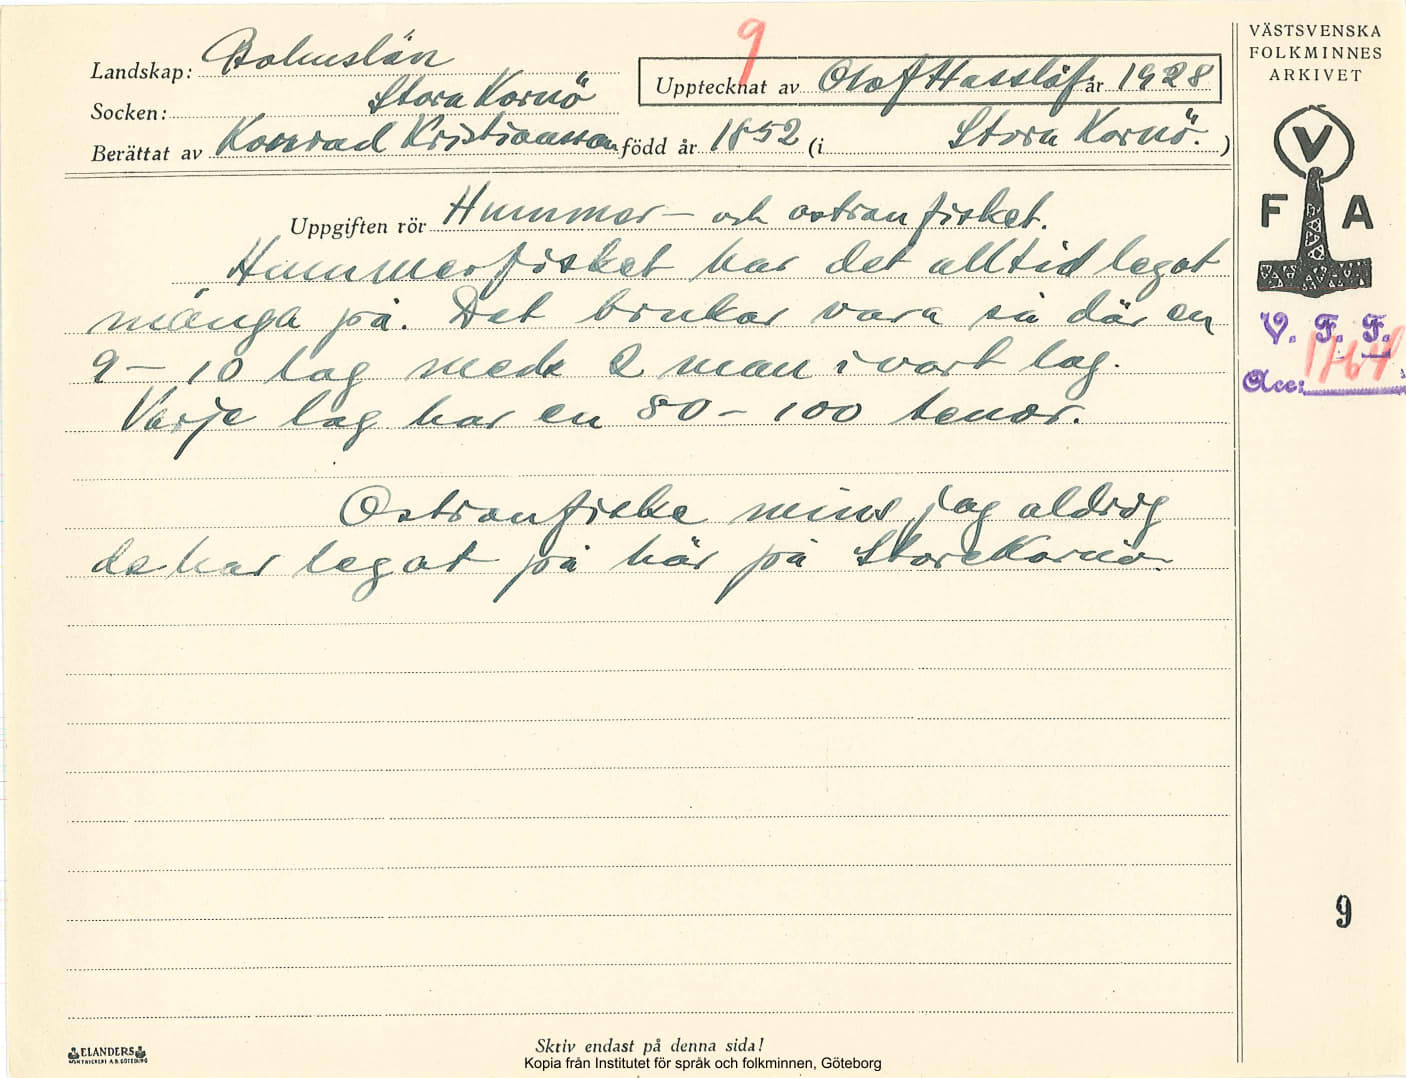 9
VÄSTSVENSKA
FOLKMINNES
ARKIVET
Landskap: Bohuslän
Upptecknat av Olof Hasslöf år 1928
Socken: Stora Kornö
Berättat av Konrad Kristiansson född år 1852 (i Stora Kornö.)
V
F A
Uppgiften rör Hummer- och ostronfisket.
Hummerfisket har det alltid legat
många på. Det brukar vara så där en
9-10 lag med 2 man i vart lag.
Varje lag har en 80-100 tenor.
V. F. F.
Acc: 1764
Ostronfiske mins jag aldrig
de har legat på här på Stora Kornö.
9
ELANDERS
Skriv endast på denna sida!
Kopia från Institutet för språk och folkminnen, Göteborg